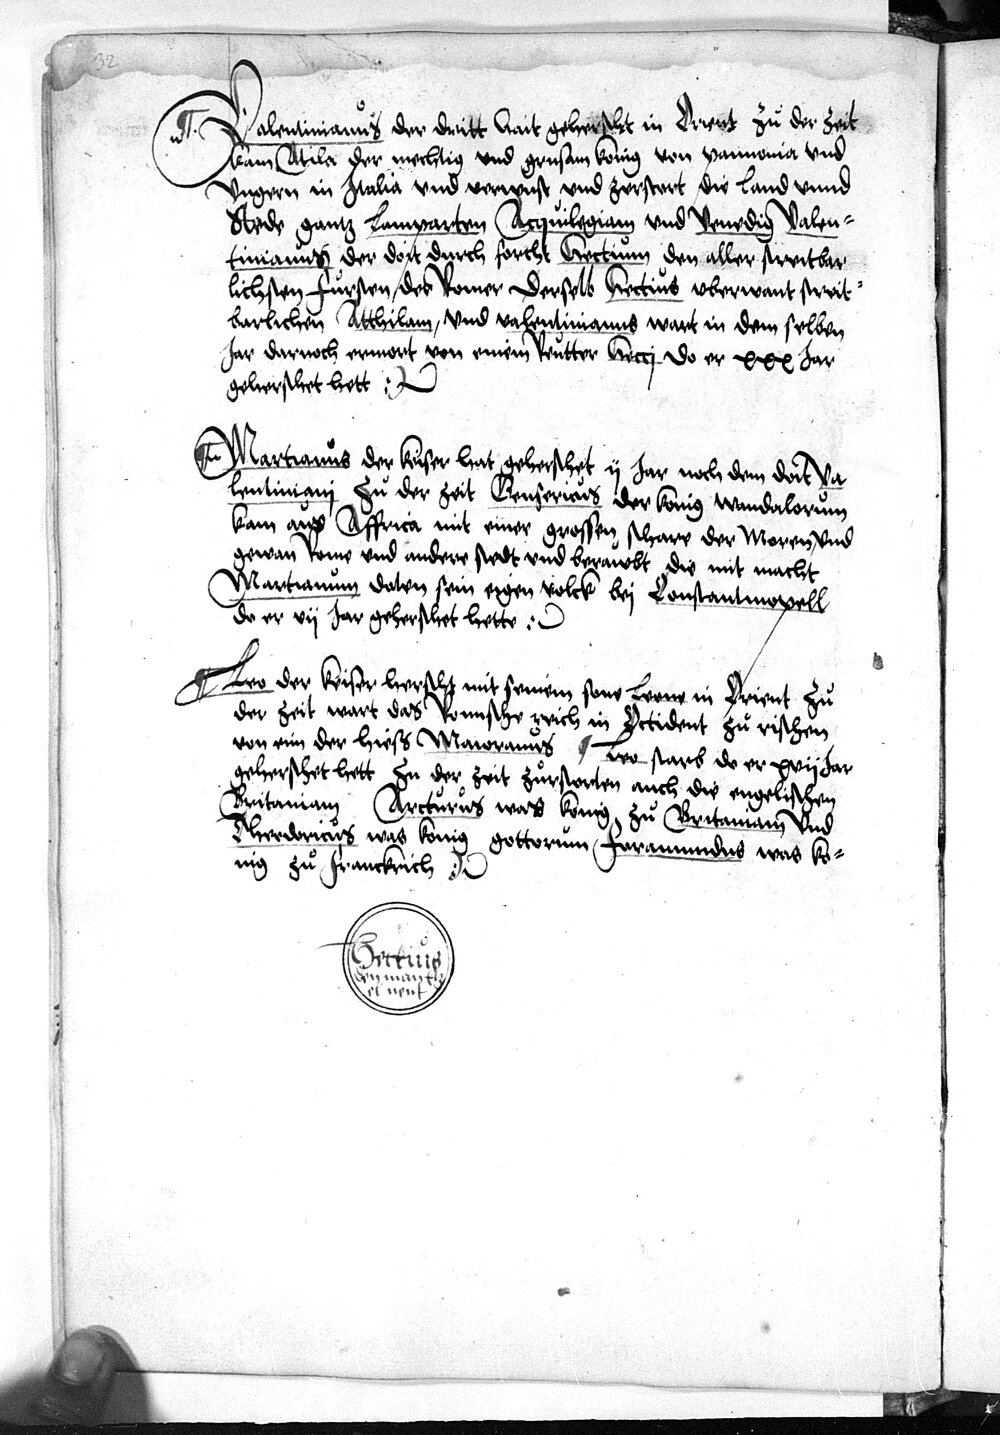 32
Valentinianus der dritt hait geherscht in Orient zu der zeit
kam Atila der mechtig vnd grusam konig von pannonia vnd
vngern in Italia vnd verwust vnd zerstort die land vnnd
Stede gantz Lamparten Acquilegiam vnd Venedig Valen=
tinianus der doit durch forcht Aectium den aller streitbar
lichsten fursten des Romer Derselb Aectius vberwant streit=
barlichen Atthilam, vnd valentinianus wart in dem selben
Jar darnoch ermort von einem Reutter Aecij do er xxx Jar
geherschet hett
Martianus der keiser hat geherschet ij Jar noch dem doit Va
lentiniani zu der zeit Gensericus der konig wandalorum
kam aus Affrica mit einer grossen schare der Moren vnd
gewan Rome vnd andere stedt vnd beraubt die mit macht
Martianum doten sein eigen volck bej Constantinopell
do er vij Jar geherschet hette
Leo der keiser herscht mit seinem sone Leone in Orient zu
der zeit wart das Romische reich in Occident zu rischen
von eim der hiess Maioranus Leo starb do er xvij Jar
geherschet hett In der zeit zurstorten auch die engelischen
Britaniam Arcturus was konig zu Britaniam vnd
Theodoricus was konig gottorum Faramundus was ko=
nig zu Franckrich
Aectius